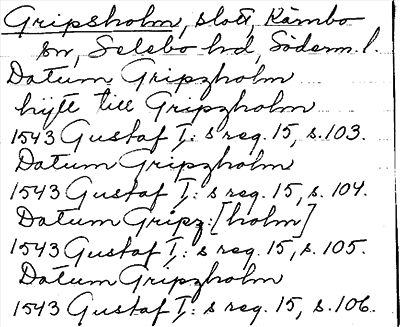 Gripsholm, slott, Kärnbo
sn, Selebo hd, Söderm. l.
Datum Gripzholm
hijtt till Gripzholm
1543 Gustaf I: s reg. 15, s. 103.
Datum Gripzholm
1543 Gustaf I: s reg. 15, s. 104.
Datum Gripz: [holm]
1543 Gustaf I: s reg. 15, s. 105.
Datum Gripzholm
1543 Gustaf I: s reg. 15, s. 106.